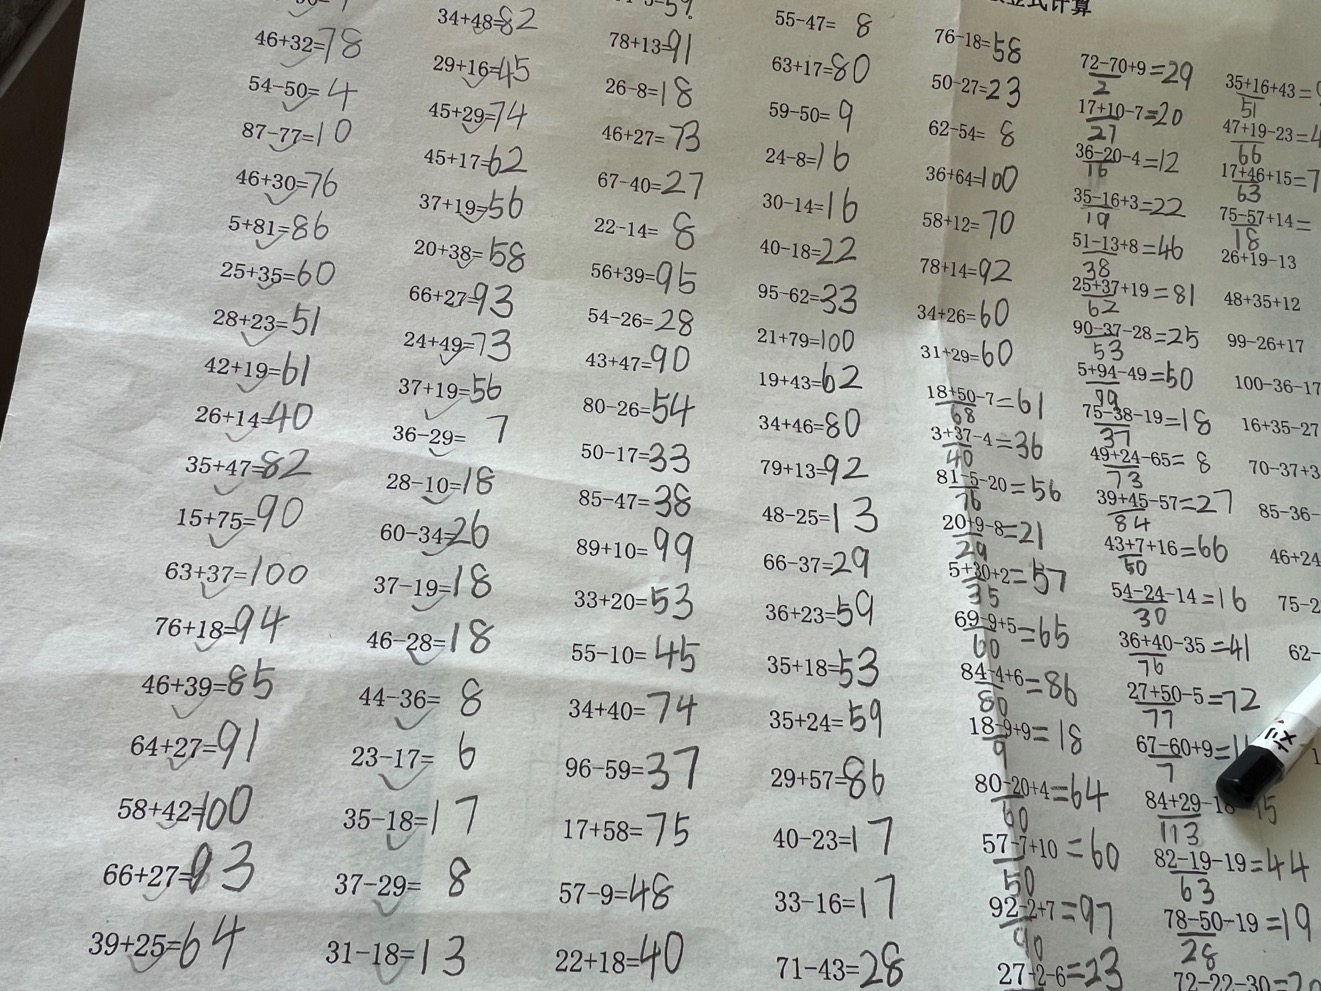 34+48=82
46+32=78
29+16=45
54-50=4
45+29=74
87-77=10
45+17=62
46+30=76
37+19=56
5+81=86
20+38=58
25+35=60
66+27=93
28+23=51
24+49=73
42+19=61
37+19=56
26+14=40
36-29=7
35+47=82
28-10=18
15+75=90
60-34=26
63+37=100
37-19=18
76+18=94
46-28=18
46+39=85
44-36=8
64+27=91
23-17=6
58+42=100
35-18=17
66+27=93
37-29=8
39+25=64
31-18=13
78+13=91
26-8=18
46+27=73
67-40=27
22-14=8
56+39=95
54-26=28
43+47=90
80-26=54
50-17=33
85-47=38
89+10=99
33+20=53
55-10=45
34+40=74
96-59=37
17+58=75
57-9=48
22+18=40
55-47=8
63+17=80
59-50=9
24-8=16
30-14=16
40-18=22
95-62=33
21+79=100
19+43=62
34+46=80
79+13=92
48-25=13
66-37=29
36+23=59
35+18=53
35+24=59
29+57=86
40-23=17
33-16=17
71-43=28
76-18=58
50-27=23
62-54=8
36+64=100
58+12=70
78+14=92
34+26=60
31+29=60
18+50-7=61
68
3+37-4=36
40
81-5-20=56
76
20+9-8=21
29
5+30+2=57
35
69-9+5=65
60
84-4+6=86
80
18-9+9=18
9
80-20+4=64
60
57-7+10=60
50
92-2+7=97
90
27-2-6=23
式计算
72-70+9=29
2
17+10-7=20
27
36-20-4=12
16
35-16+3=22
19
51-13+8=46
38
25+37+19=81
62
90-37-28=25
53
5+94-49=50
99
75-38-19=18
37
49+24-65=8
73
39+45-57=27
84
43+7+16=66
50
54-24-14=16
30
36+40-35=41
76
27+50-5=72
77
67-60+9=1
7
84+29-18 15
113
82-19-19=44
63
78-50-19=19
28
72-22-30=20
35+16+43=
51
47+19-23=4
66
17+46+15=7
63
75-57+14=
18
26+19-13
48+35+12
99-26+17
100-36-17
16+35-27
70-37+3
85-36-
46+24
75-2
62-